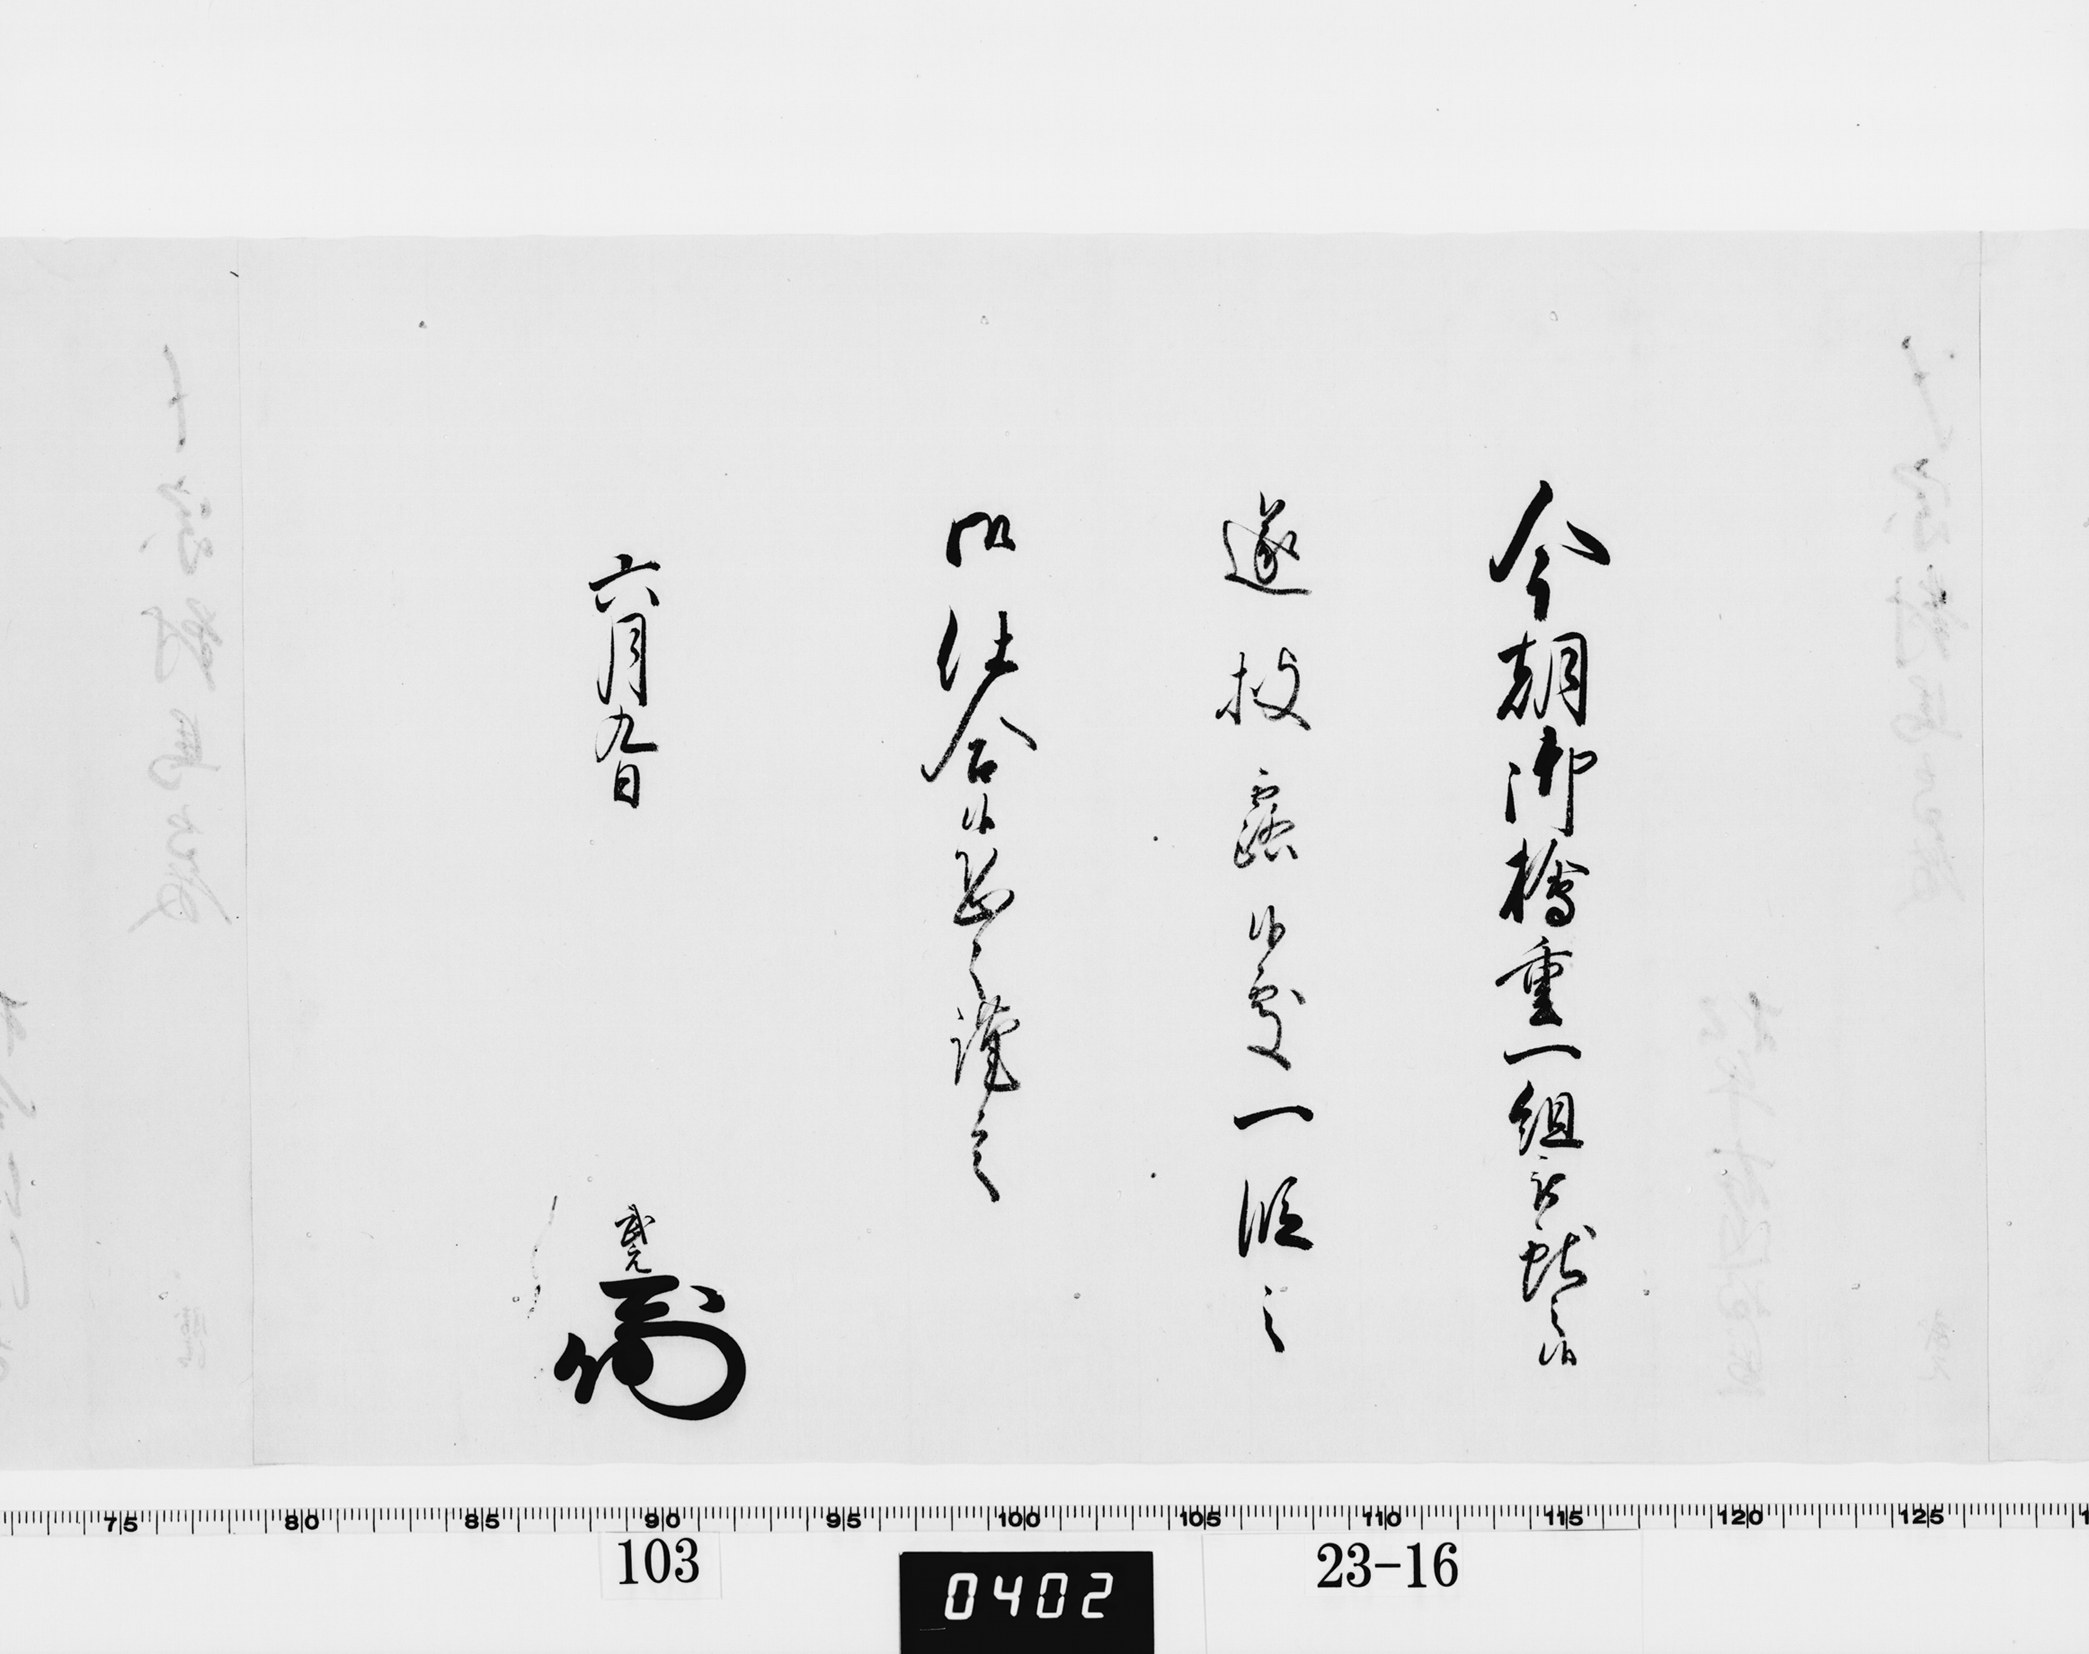 今朝御檜重一組被献之候
遂披露候處一段之
御仕合候恐々謹言
六月九日
武元
75 80 85 90 95 100 105 110 115 120 125
103
0402
23-16